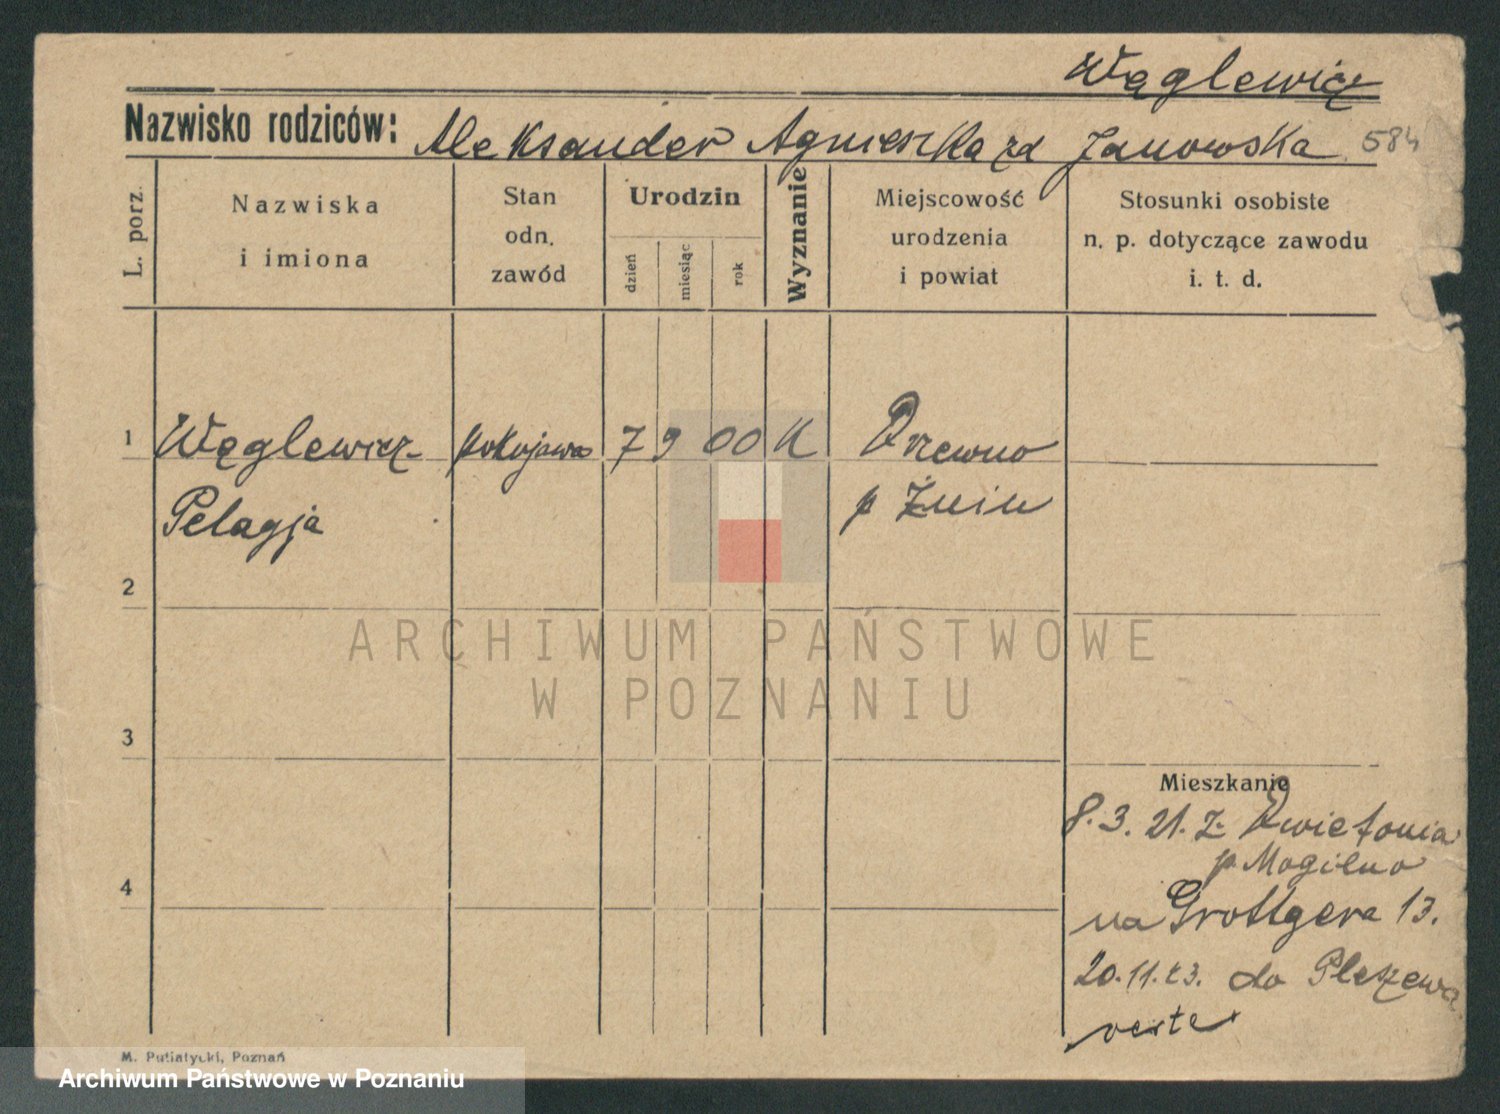 Węglewicz
Nazwisko rodziców: Aleksander Agnieszka zd Janowska 584
L. porz.
Nazwiska
i imiona
Stan
odn.
zawód
Urodzin
dzień
miesiąc
rok
Wyznanie
Miejscowość
urodzenia
i powiat
Stosunki osobiste
n. p. dotyczące zawodu
i. t. d.
1 Węglewicz pokojowa 7 9 00 K Drewno
Pelagja p Żnin
2
ARCHIWUM PAŃSTWOWE
W POZNANIU
3
Mieszkanie
8.3.21. z Kwietonia
p Mogilno
4
na Grottgera 13.
20.11.23. do Pleszewa
verte
M. Putiatycki, Poznań
Archiwum Państwowe w Poznaniu